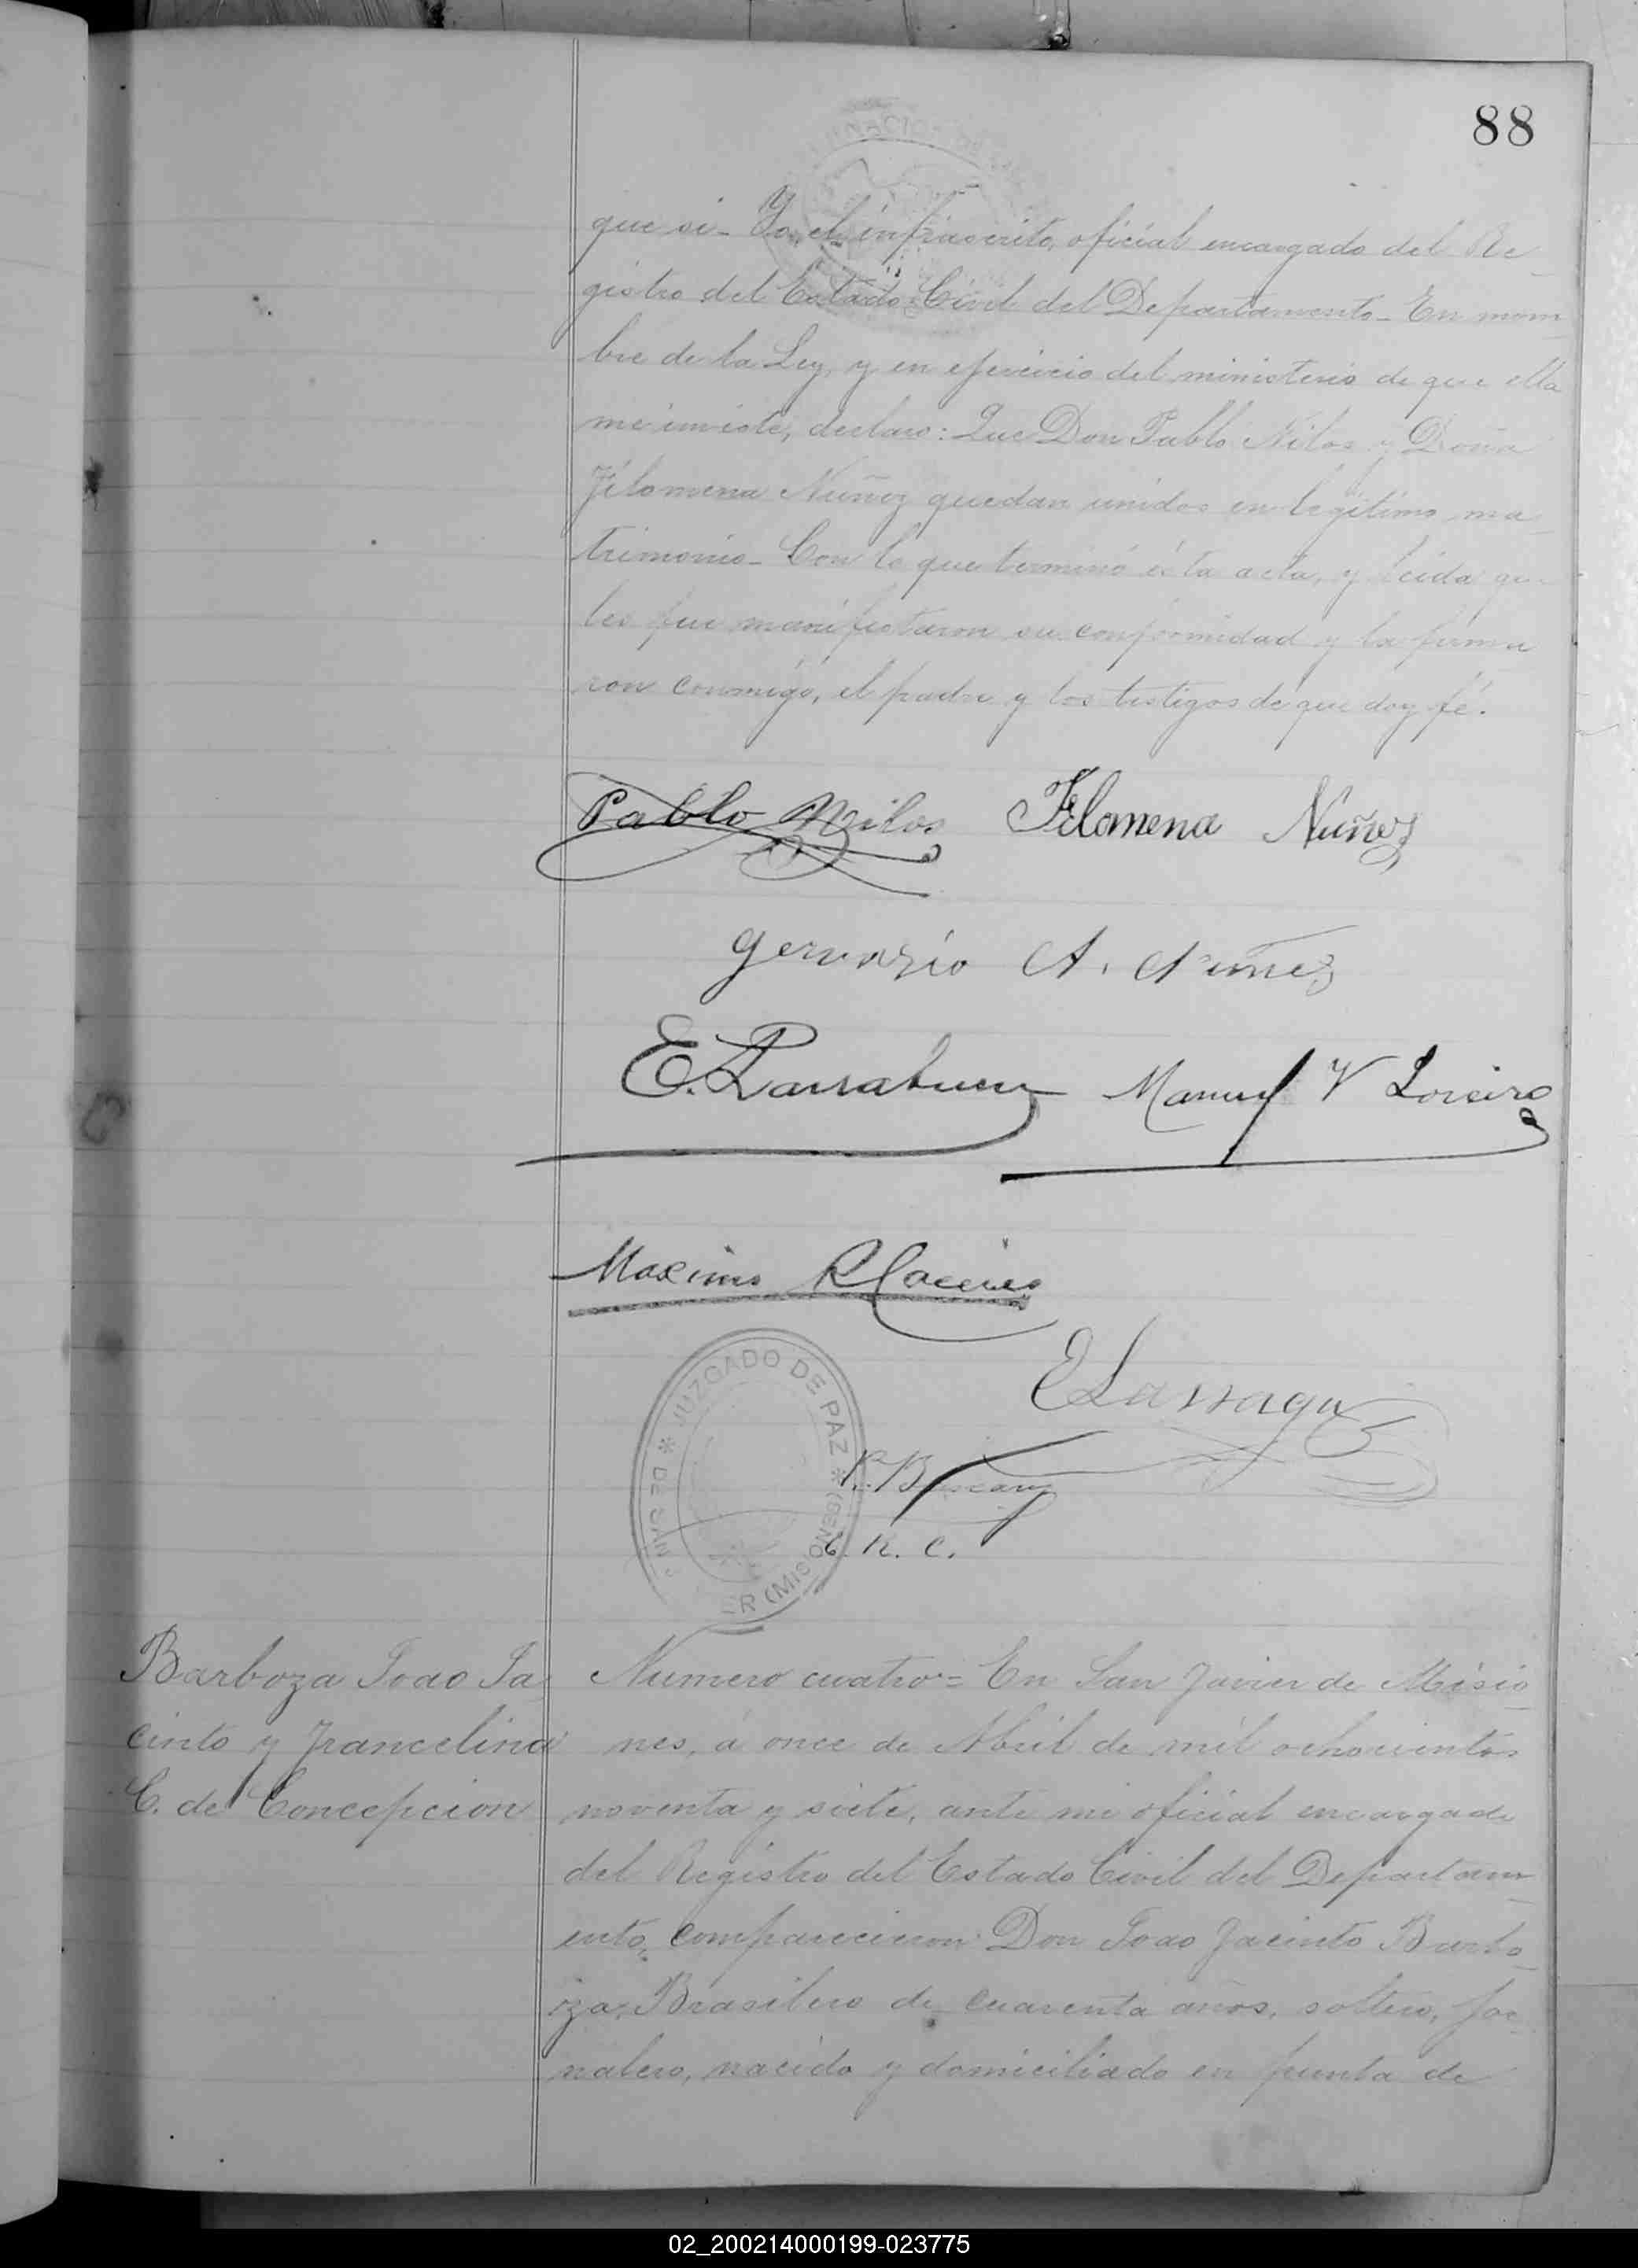 88
que si - Yo, el infrascrito, oficial encargado del Re
gistro del Estado Civil del Departamento - En nom
bre de la Ley, y en ejercicio del ministerio de que ella
me inviste, declaro: Que Don Pablo Nilos y Doña
Filomena Nuñez quedan unidos en legítimo ma
trimonio - Con lo que terminó ésta acta, y leida que
les fue manifestaron su conformidad y la firma
ron conmigo, el padre y los testigos de que doy fé.
Pablo Nilos Filomena Nuñez
Gervasio A. Nuñez
E. Manuel V Loreiro
Maximo
E Larraga
JUZGADO DE PAZ
DE SAN ER (MISIONES)
R. C.
Barboza Joao Ja
cinto y Francelina
C. de Concepcion
Numero cuatro = En San Javier de Misio
nes, á once de Abril de mil ochocientos
noventa y siete, ante mi oficial encargado
del Registro del Estado Civil del Departam
ento, comparecieron Don Joao Jacinto Barbo
za, Brasilero de cuarenta años, soltero, jor
nalero, nacido y domiciliado en punta de
02_200214000199-023775